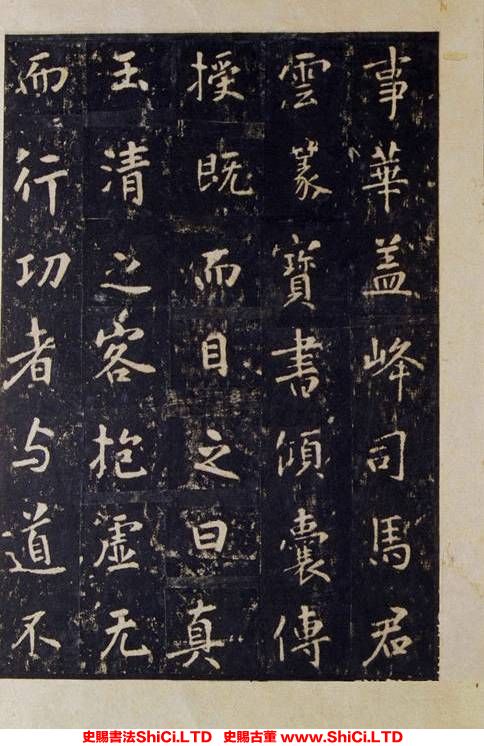 事華盖峰司馬君
雲篆寶書傾囊傳
授既而目之曰真
玉清之客抱虚无
而行功者与道不
史賜書法ShiCi.LTD 史賜古董 www.ShiCi.LTD